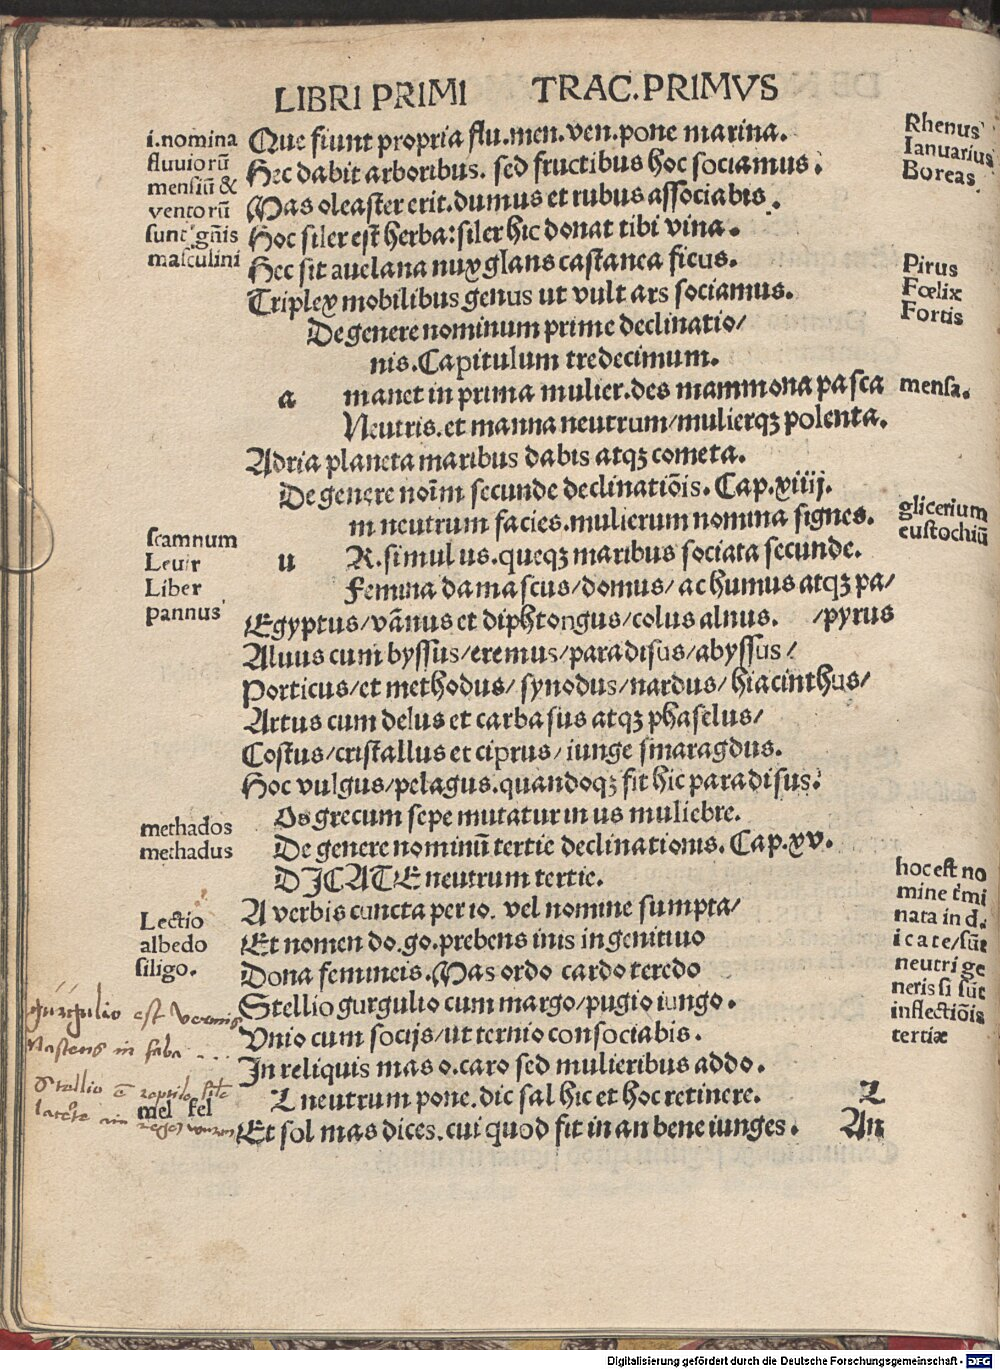 LIBRI PRIMI TRAC.PRIMVS
i.nomina
fluuiorū
mensiū &
ventorū
sunt gñis
masculini
Que fiunt propria flu.men.ven.pone marina.
Hec dabit arboribus. sed fructibus hoc sociamus.
Mas oleaster erit.dumus et rubus associabis.
Hoc siler est herba:siler hic donat tibi vina.
Hec sit auelana nux glans castanea ficus.
Triplex mobilibus genus ut vult ars sociamus.
Rhenus
Ianuarius
Boreas
Pirus
Fœlix
Fortis
De genere nominum prime declinatio/
nis.Capitulum tredecimum.
a manet in prima mulier.des mammona pasca
mensa.
Neutris.et manna neutrum/mulierqꝫ polenta.
Adria planeta maribus dabis atqꝫ cometa.
De genere noīm secunde declinatiōis. Cap.xiiij.
m neutrum facies.mulierum nomina signes.
glicerium
eustochiū
scamnum
Leuir
Liber
pannus
u R.simul us.queqꝫ maribus sociata secunde.
Femina damascus/domus/ac humus atqꝫ pa/
Egyptus/vānus et diphtongus/colus alnus. /pyrus
Aluus cum byssus/eremus/paradisus/abyssus/
Porticus/et methodus/synodus/nardus/hiacinthus/
Artus cum delus et carbasus atqꝫ phaselus/
Costus/cristallus et ciprus/iunge smaragdus.
Hoc vulgus/pelagus.quandoqꝫ fit hic paradisus.
methados
methadus
Os grecum sepe mutatur in us muliebre.
De genere nominū tertie declinationis. Cap.xv.
DICATE neutrum tertie.
hoc est no
mine t̄mi
nata in d.
i c a t e/sūt
neutri ge
neris si sūt
inflectiōis
tertiæ
Lectio
albedo
siligo.
A verbis cuncta per io. vel nomine sumpta/
Et nomen do.go.prebens inis in genitiuo
Dona femineis.Mas ordo cardo teredo
Stellio gurgulio cum margo/pugio iungo.
Vnio cum socijs/ut ternio consociabis.
In reliquis mas o.caro sed mulieribus addo.
gurgulio est vermis
Nastens in faba
Stellio ē reptile
mel fel
L neutrum pone.dic sal hic et hoc retinere. L
Et sol mas dices.cui quod fit in an bene iunges. An
Digitalisierung gefördert durch die Deutsche Forschungsgemeinschaft - DFG